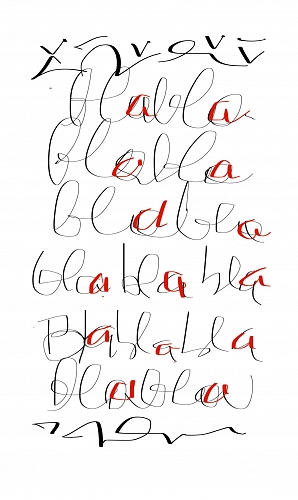 blabla
blabla
blabla
blablabla
Blablabla
blabla